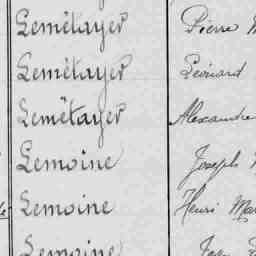 Lemétayer Pierre M
Lemétayer Léonard
Lemétayer Alexandre
Lemoine Joseph
Lemoine Henri Mar
Lemoine Jean